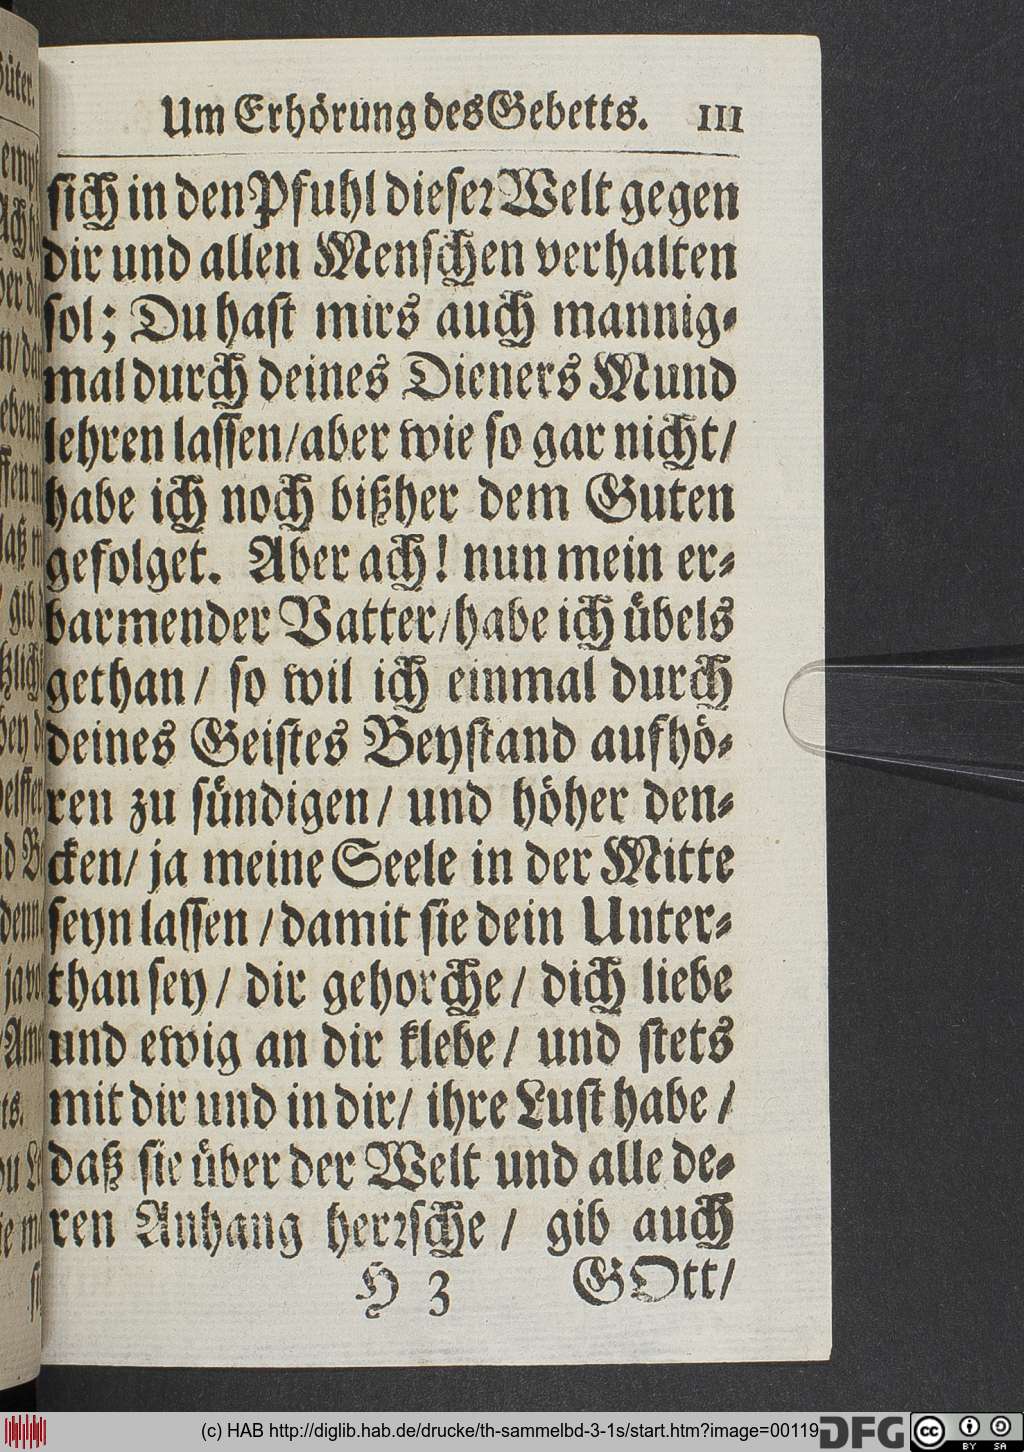 Um Erhörung des Gebetts. 111
sich in den Pfuhl dieser Welt gegen
dir und allen Menschen verhalten
sol; Du hast mirs auch mannig-
mal durch deines Dieners Mund
lehren lassen/ aber wie so gar nicht/
habe ich noch bißher dem Guten
gefolget. Aber ach! nun mein er-
barmender Vatter/ habe ich übels
gethan/ so wil ich einmal durch
deines Geistes Beystand aufhö-
ren zu sündigen/ und höher den-
cken/ ja meine Seele in der Mitte
seyn lassen/ damit sie dein Unter-
than sey/ dir gehorche/ dich liebe
und ewig an dir klebe/ und stets
mit dir und in dir/ ihre Lust habe/
daß sie über der Welt und alle de-
ren Anhang herrsche/ gib auch
H 3 GOtt/
(c) HAB http://diglib.hab.de/drucke/th-sammelbd-3-1s/start.htm?image=00119
DFG
cc BY SA